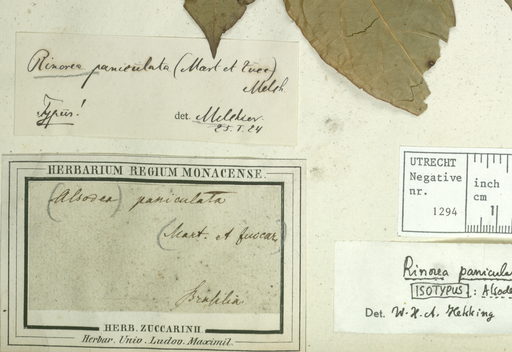 Rinorea paniculata (Mart et Zucc)
Melch
Typus!
det. Melchior
25.I.24
HERBARIUM REGIUM MONACENSE.
(Alsodea) paniculata
(Mart. et Zuccar)
Brasilia
HERB. ZUCCARINII
Herbar. Univ. Ludov. Maximil.
UTRECHT
Negative
nr.
1294
inch
cm
1
Rinorea panicula
ISOTYPUS: Alsode
Det. W.H.A. Hekking